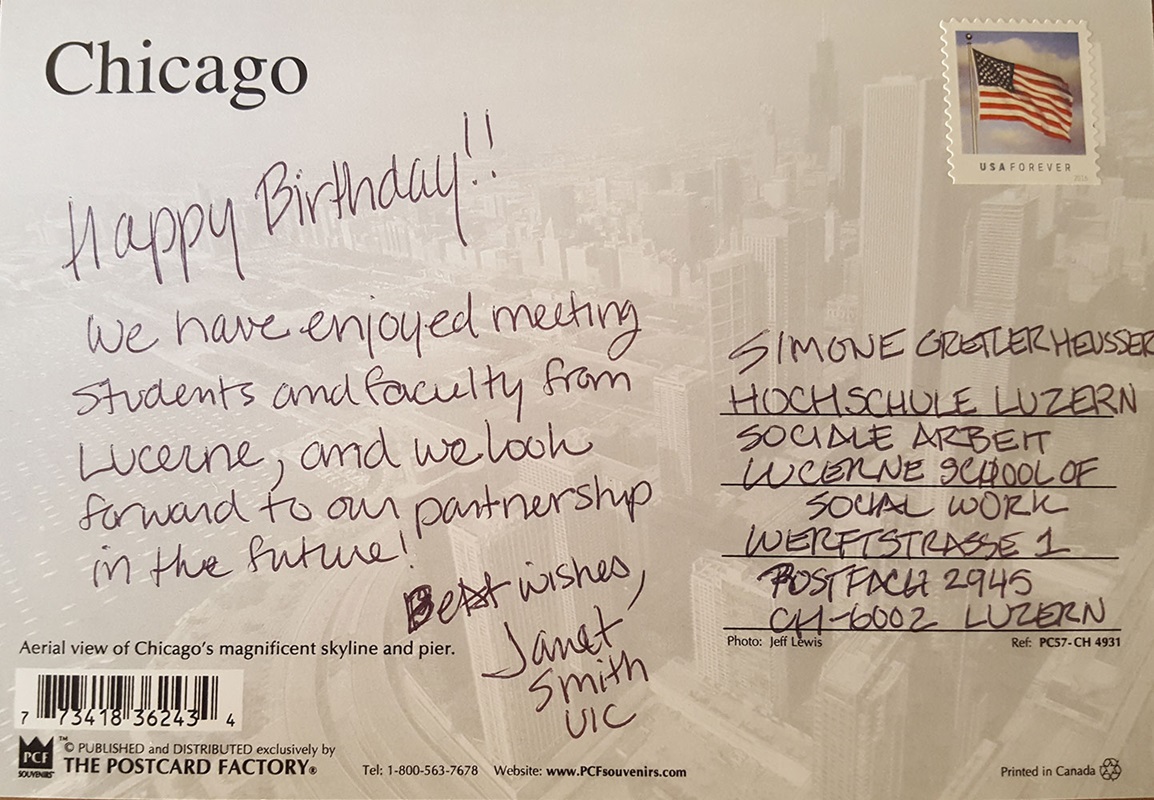 Chicago
USA FOREVER
2016
Happy Birthday!!
We have enjoyed meeting
students and faculty from
Lucerne, and we look
forward to our partnership
in the future!
Best wishes,
Janet
Smith
UIC
SIMONE GRETLER HEUSSER
HOCHSCHULE LUZERN
SOCIALE ARBEIT
LUCERNE SCHOOL OF
SOCIAL WORK
WERFTSTRASSE 1
POSTFACH 2945
CH-6002 LUZERN
Aerial view of Chicago's magnificent skyline and pier.
Photo: Jeff Lewis
Ref: PC57-CH 4931
7 73418 36243 4
PCF
SOUVENIRS
™ © PUBLISHED and DISTRIBUTED exclusively by
THE POSTCARD FACTORY®
Tel: 1-800-563-7678 Website: www.PCFsouvenirs.com
Printed in Canada